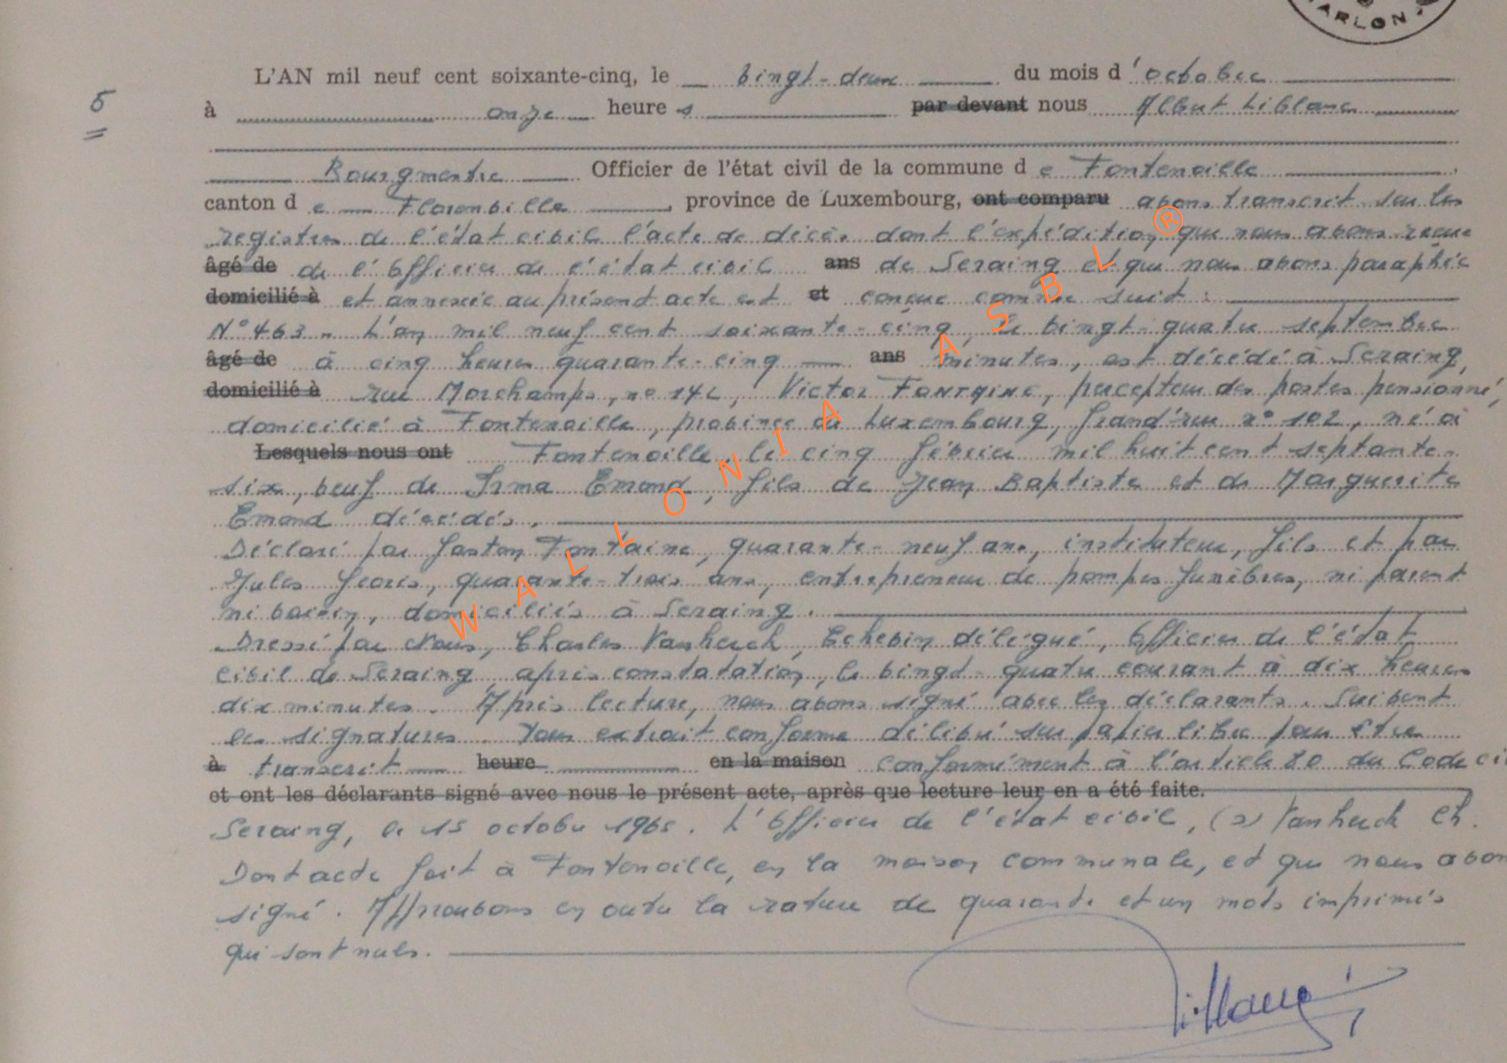 ARLON
L'AN mil neuf cent soixante-cinq, le vingt-deux du mois d'octobre
5
à onze heures par devant nous Albert Liblanc
Bourgmestre Officier de l'état civil de la commune de Fontenoille
canton de Florenville, province de Luxembourg, ont comparu avons transcrit sur les
registres de l'état civil l'acte de décès dont l'expédition que nous avons reçue
âgé de de l'Officier de l'état civil ans de Seraing et que nous avons paraphée
domicilié à et annexée au présent acte est et conçue comme suit :
N° 463. L'an mil neuf cent soixante-cinq, le vingt-quatre septembre
âgé de à cinq heures quarante-cinq ans minutes, est décédé à Seraing,
domicilié à rue Morchamps, n° 142, Victor FONTAINE, percepteur des postes pensionné,
domicilié à Fontenoille, province du Luxembourg, Grand'rue n° 102, né à
Lesquels nous ont Fontenoille, le cinq février mil huit cent septante-
six, veuf de Irma Emond, fils de Jean Baptiste et de Marguerite
Emond décédés.
Déclaré par Gaston Fontaine, quarante-neuf ans, instituteur, fils et par
Jules Georis, quarante-trois ans, entrepreneur de pompes funèbres, ni parent
ni voisin, domiciliés à Seraing.
Dressé par Nous, Charles Vanherck, Echevin délégué, Officier de l'état
civil de Seraing, après constatation, le vingt-quatre courant à dix heures
dix minutes. Après lecture, nous avons signé avec les déclarants. Suivent
les signatures. Pour extrait conforme délivré sur papier libre pour être
à transcrit heure en la maison conformément à l'article 80 du Code ci
et ont les déclarants signé avec nous le présent acte, après que lecture leur en a été faite.
Seraing, le 15 octobre 1965. L'Officier de l'état civil, (s) Vanherck Ch.
Dont acte fait à Fontenoille, en la maison communale, et que nous avon
signé. Approuvons en outre la rature de quarante et un mots imprimés
qui sont nuls.
WALLONIA ASBL ®